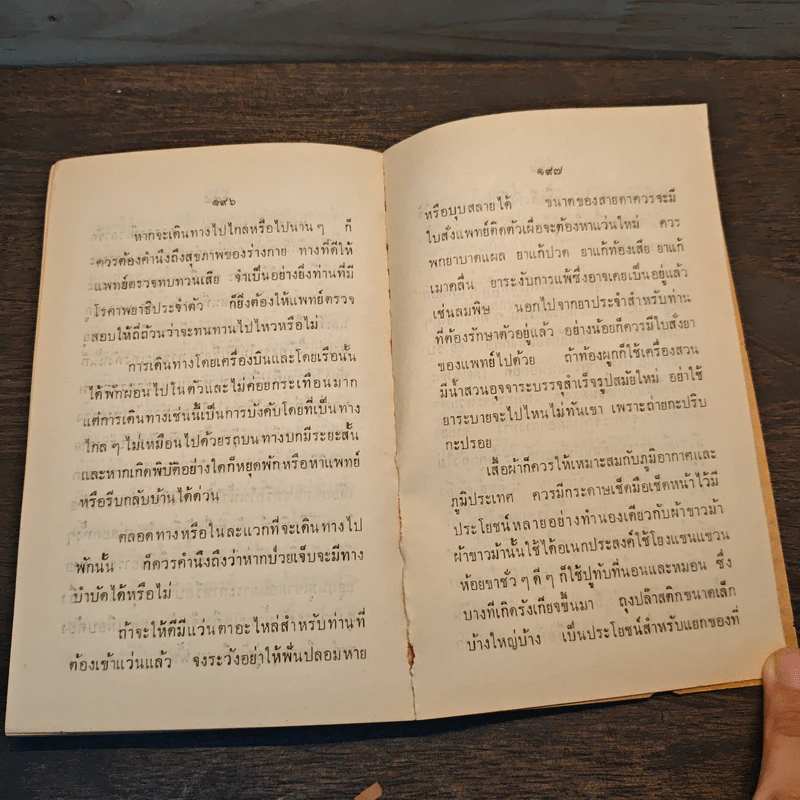 ๑๙๖
หากจะเดินทางไปไกลหรือไปนาน ๆ ก็
ควรต้องคำนึงถึงสุขภาพของร่างกาย ทางที่ดีให้
แพทย์ตรวจทบทวนเสีย จำเป็นอย่างยิ่งท่านที่มี
โรคาพยาธิประจำตัว ก็ยิ่งต้องให้แพทย์ตรวจ
สอบให้ถี่ถ้วนว่าจะทนทานไปไหวหรือไม่
การเดินทางโดยเครื่องบินและโดยเรือนั้น
ได้พักผ่อนไปในตัวและไม่ค่อยกระเทือนมาก
แต่การเดินทางเช่นนี้เป็นการบังคับโดยที่เป็นทาง
ไกล ๆ ไม่เหมือนไปด้วยรถบนทางบกมีระยะสั้น
และหากเกิดพิบัติอย่างใดก็หยุดพักหรือหาแพทย์
หรือรีบกลับบ้านได้ด่วน
ตลอดทางหรือในละแวกที่จะเดินทางไป
พักนั้น ก็ควรคำนึงถึงว่าหากป่วยเจ็บจะมีทาง
บำบัดได้หรือไม่
ถ้าจะให้ดีมีแว่นตาอะไหล่สำหรับท่านที่
ต้องเข้าแว่นแล้ว จงระวังอย่าให้ฟันปลอมหาย
๑๙๗
หรือบุบสลายได้ ขนาดของสายตาควรจะมี
ใบสั่งแพทย์ติดตัวเผื่อจะต้องหาแว่นใหม่ ควร
พกยาบาดแผล ยาแก้ปวด ยาแก้ท้องเสีย ยาแก้
เมาคลื่น ยาระงับการแพ้ซึ่งอาจเคยเป็นอยู่แล้ว
เช่นลมพิษ นอกไปจากยาประจำสำหรับท่าน
ที่ต้องรักษาตัวอยู่แล้ว อย่างน้อยก็ควรมีใบสั่งยา
ของแพทย์ไปด้วย ถ้าท้องผูกก็ใช้เครื่องสวน
มีน้ำสวนอุจจาระบรรจุสำเร็จรูปสมัยใหม่ อย่าใช้
ยาระบายจะไปไหนไม่ทันเขา เพราะถ่ายกะปริบ
กะปรอย
เสื้อผ้าก็ควรให้เหมาะสมกับภูมิอากาศและ
ภูมิประเทศ ควรมีกระดาษเช็ดมือเช็ดหน้าไว้มี
ประโยชน์หลายอย่างทำนองเดียวกับผ้าขาวม้า
ผ้าขาวม้านั้นใช้ได้อเนกประสงค์ใช้โยงแขนแขวน
ห้อยขาชั่ว ๆ ดี ๆ ก็ใช้ปูทับที่นอนและหมอน ซึ่ง
บางทีเกิดรังเกียจขึ้นมา ถุงปล๊าสติกขนาดเล็ก
บ้างใหญ่บ้าง เป็นประโยชน์สำหรับแยกของที่